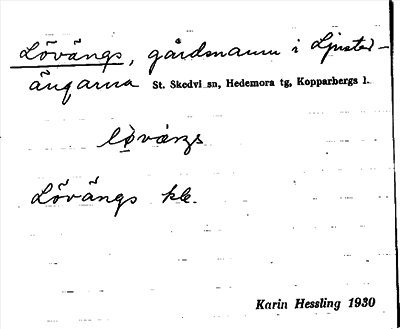 Lövängs, gårdsnamn i Ljuster-
ängarna St. Skedvi sn, Hedemora tg, Kopparbergs l.
Lövängs
Karin Hessling 1930